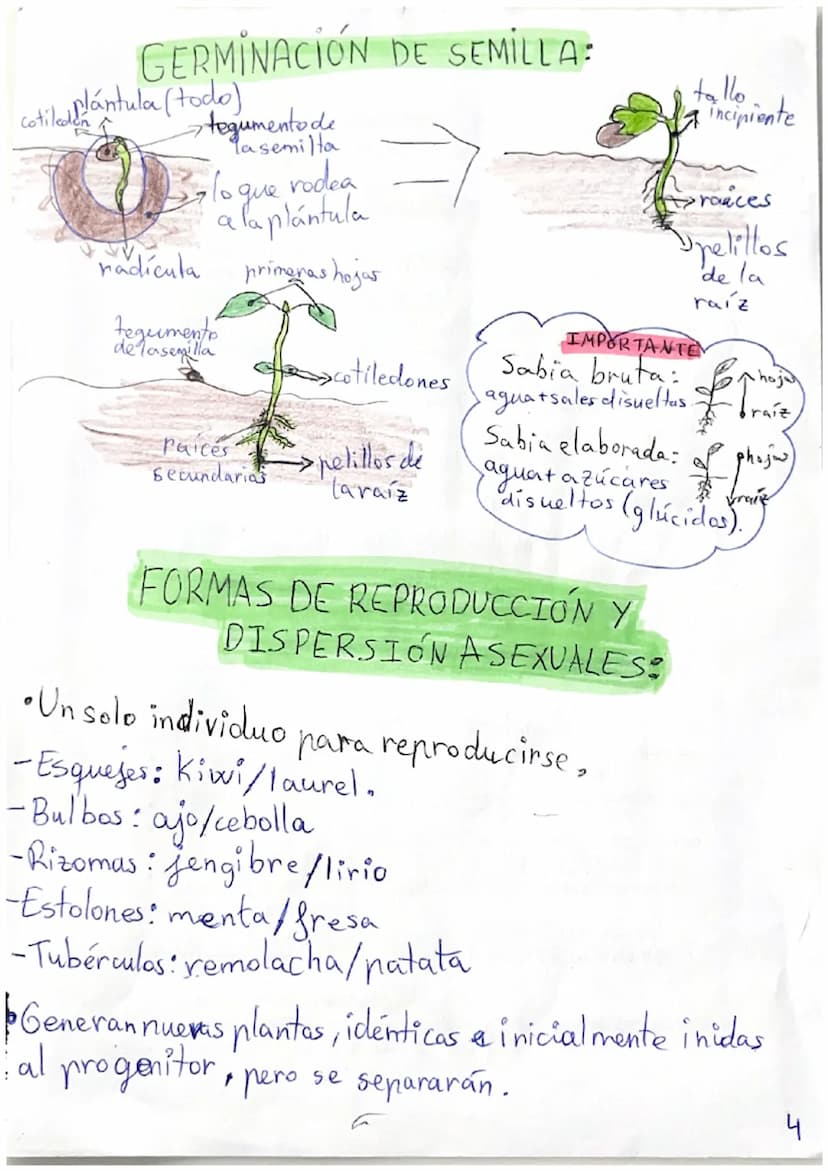 GERMINACIÓN DE SEMILLA:
plántula (todo)
cotiledón
tegumento de
la semilla
lo que rodea
a la plántula
radícula
tallo
incipiente
raíces
pelillos
de la
raíz
primeras hojas
tegumento
de la semilla
cotiledones
raíces
secundarias
pelillos de
la raíz
IMPORTANTE
Sabia bruta:
agua+sales disueltas
hojas
raíz
Sabia elaborada:
agua+azúcares
disueltos (glúcidos).
hojas
raíz
FORMAS DE REPRODUCCIÓN Y
DISPERSIÓN ASEXUALES:
•Un solo individuo para reproducirse.
-Esquejes: kiwi/laurel.
-Bulbos: ajo/cebolla
-Rizomas: jengibre/lirio
-Estolones: menta/fresa
-Tubérculos: remolacha/patata
•Generan nuevas plantas, idénticas e inicialmente inidas
al progenitor, pero se separarán.
4